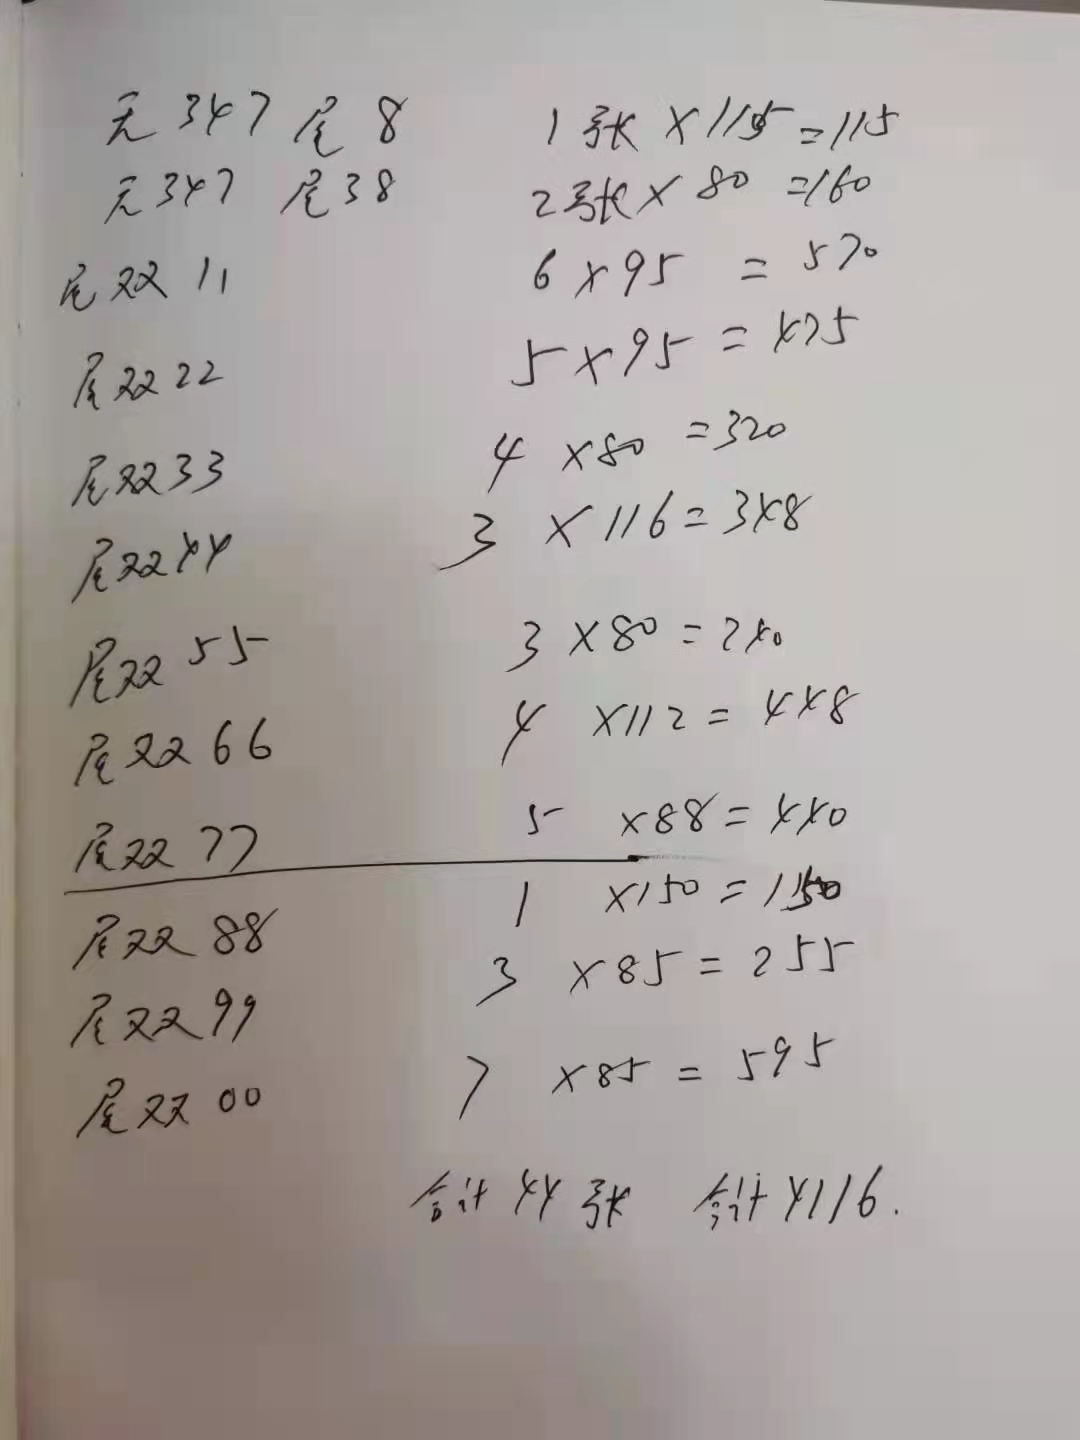 无347 尾8 1张×115=115
无347 尾38 2张×80=160
尾双11 6×95=570
尾双22 5×95=475
尾双33 4×80=320
尾双44 3×116=348
尾双55 3×80=240
尾双66 4×112=448
尾双77 5×88=440
尾双88 1×150=150
尾双99 3×85=255
尾双00 7×85=595
合计44张 合计4116.